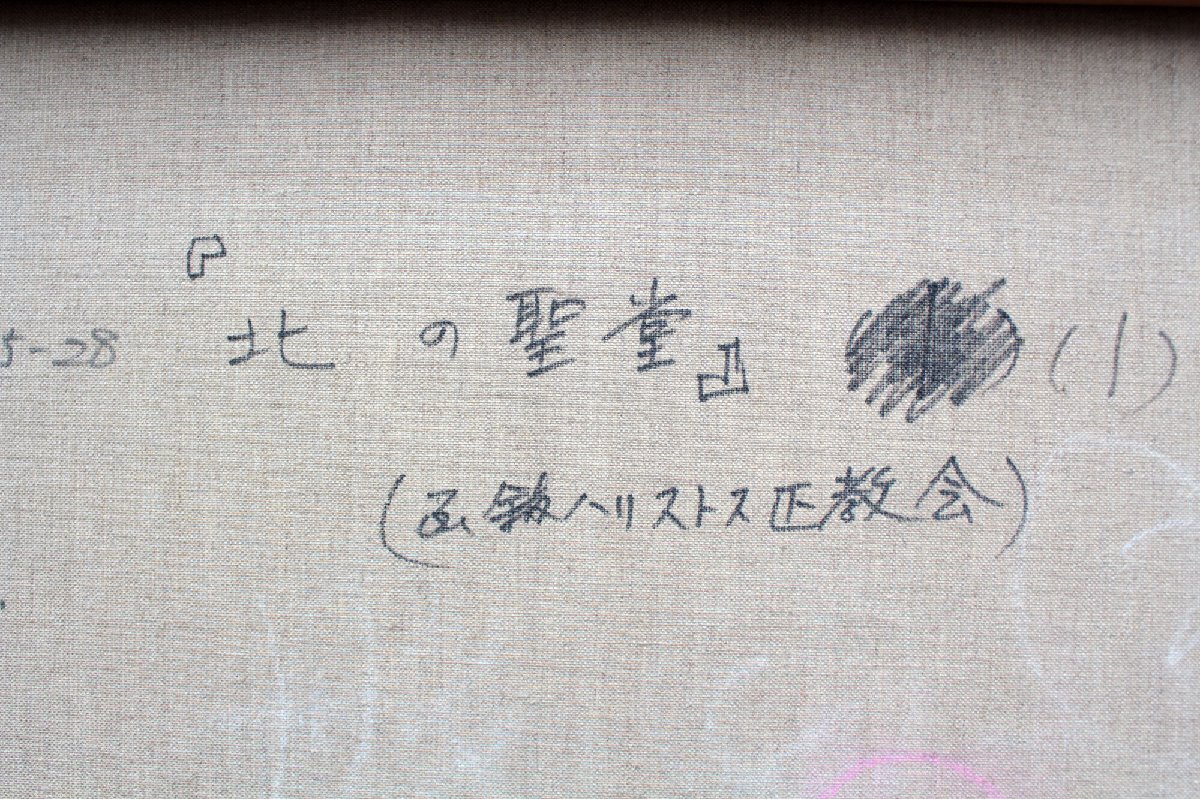 5-28 『北の聖堂』 (1)
(函館ハリストス正教会)